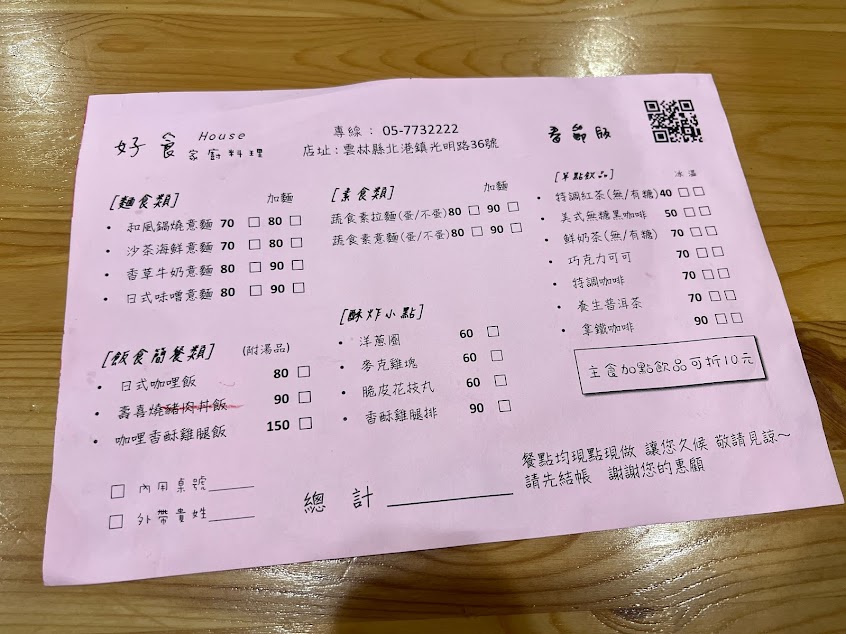 好食 House
家廚料理
專線： 05-7732222
店址：雲林縣北港鎮光明路36號
春節版
[麵食類] 加麵
• 和風鍋燒意麵 70 □ 80 □
• 沙茶海鮮意麵 70 □ 80 □
• 香草牛奶意麵 80 □ 90 □
• 日式味噌意麵 80 □ 90 □
[飯食簡餐類] (附湯品)
• 日式咖哩飯 80 □
• 壽喜燒豬肉丼飯 90 □
• 咖哩香酥雞腿飯 150 □
[素食類] 加麵
蔬食素拉麵(蛋/不蛋) 80 □ 90 □
蔬食素意麵(蛋/不蛋) 80 □ 90 □
[酥炸小點]
• 洋蔥圈 60 □
• 麥克雞塊 60 □
• 脆皮花枝丸 60 □
• 香酥雞腿排 90 □
[單點飲品] 冰 溫
• 特調紅茶(無/有糖) 40 □ □
• 美式無糖黑咖啡 50 □ □
• 鮮奶茶(無/有糖) 70 □ □
• 巧克力可可 70 □ □
• 特調咖啡 70 □ □
• 養生普洱茶 70 □ □
• 拿鐵咖啡 90 □ □
主食加點飲品可折10元
□ 內用桌號____
□ 外帶貴姓____
總 計 ________
餐點均現點現做 讓您久候 敬請見諒~
請先結帳 謝謝您的惠顧